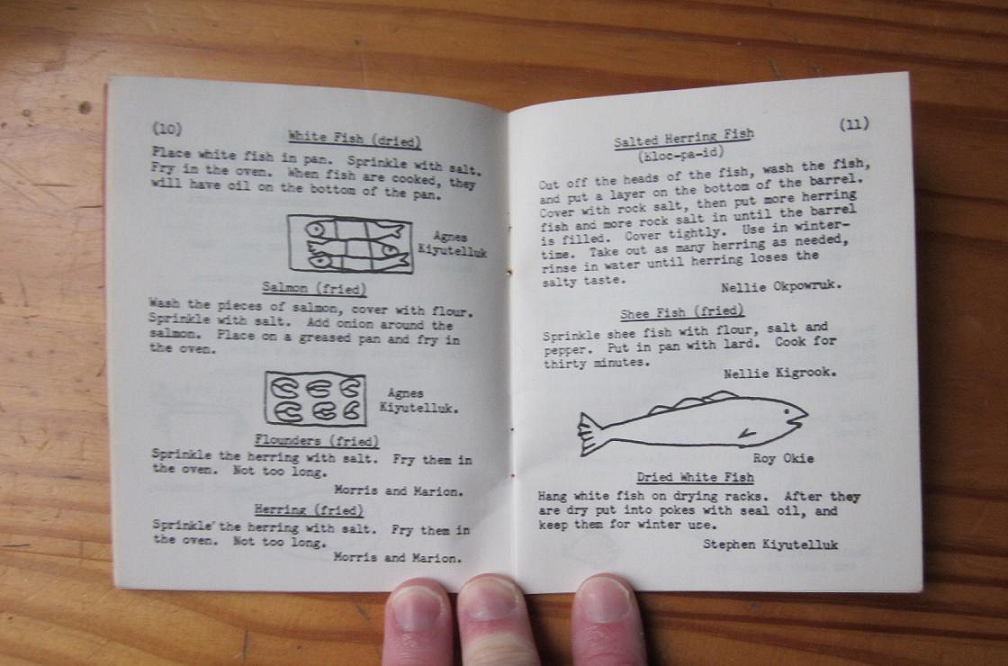 (10)
White Fish (dried)
Place white fish in pan. Sprinkle with salt.
Fry in the oven. When fish are cooked, they
will have oil on the bottom of the pan.
Agnes
Kiyutelluk
Salmon (fried)
Wash the pieces of salmon, cover with flour.
Sprinkle with salt. Add onion around the
salmon. Place on a greased pan and fry in
the oven.
Agnes
Kiyutelluk.
Flounders (fried)
Sprinkle the herring with salt. Fry them in
the oven. Not too long.
Morris and Marion.
Herring (fried)
Sprinkle the herring with salt. Fry them in
the oven. Not too long.
Morris and Marion.
(11)
Salted Herring Fish
(bloc-pa-id)
Cut off the heads of the fish, wash the fish,
and put a layer on the bottom of the barrel.
Cover with rock salt, then put more herring
fish and more rock salt in until the barrel
is filled. Cover tightly. Use in winter-
time. Take out as many herring as needed,
rinse in water until herring loses the
salty taste.
Nellie Okpowruk.
Shee Fish (fried)
Sprinkle shee fish with flour, salt and
pepper. Put in pan with lard. Cook for
thirty minutes.
Nellie Kigrook.
Roy Okie
Dried White Fish
Hang white fish on drying racks. After they
are dry put into pokes with seal oil, and
keep them for winter use.
Stephen Kiyutelluk